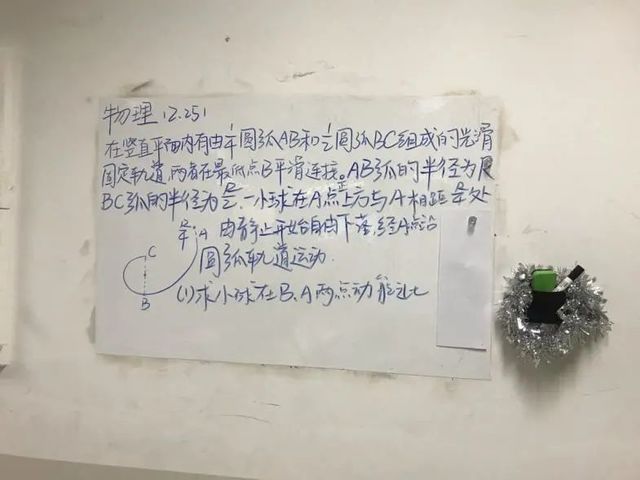 物理 12.251
在竖直平面内有由1/4圆弧AB和1/2圆弧BC组成的光滑
固定轨道,两者在最低点B平滑连接。AB弧的半径为R
BC弧的半径为R/2.一小球在A点正上方与A相距R/4处
由静止开始自由下落,经A点沿
圆弧轨道运动.
(1)求小球在B、A两点动能之比
R/4
A
C
B